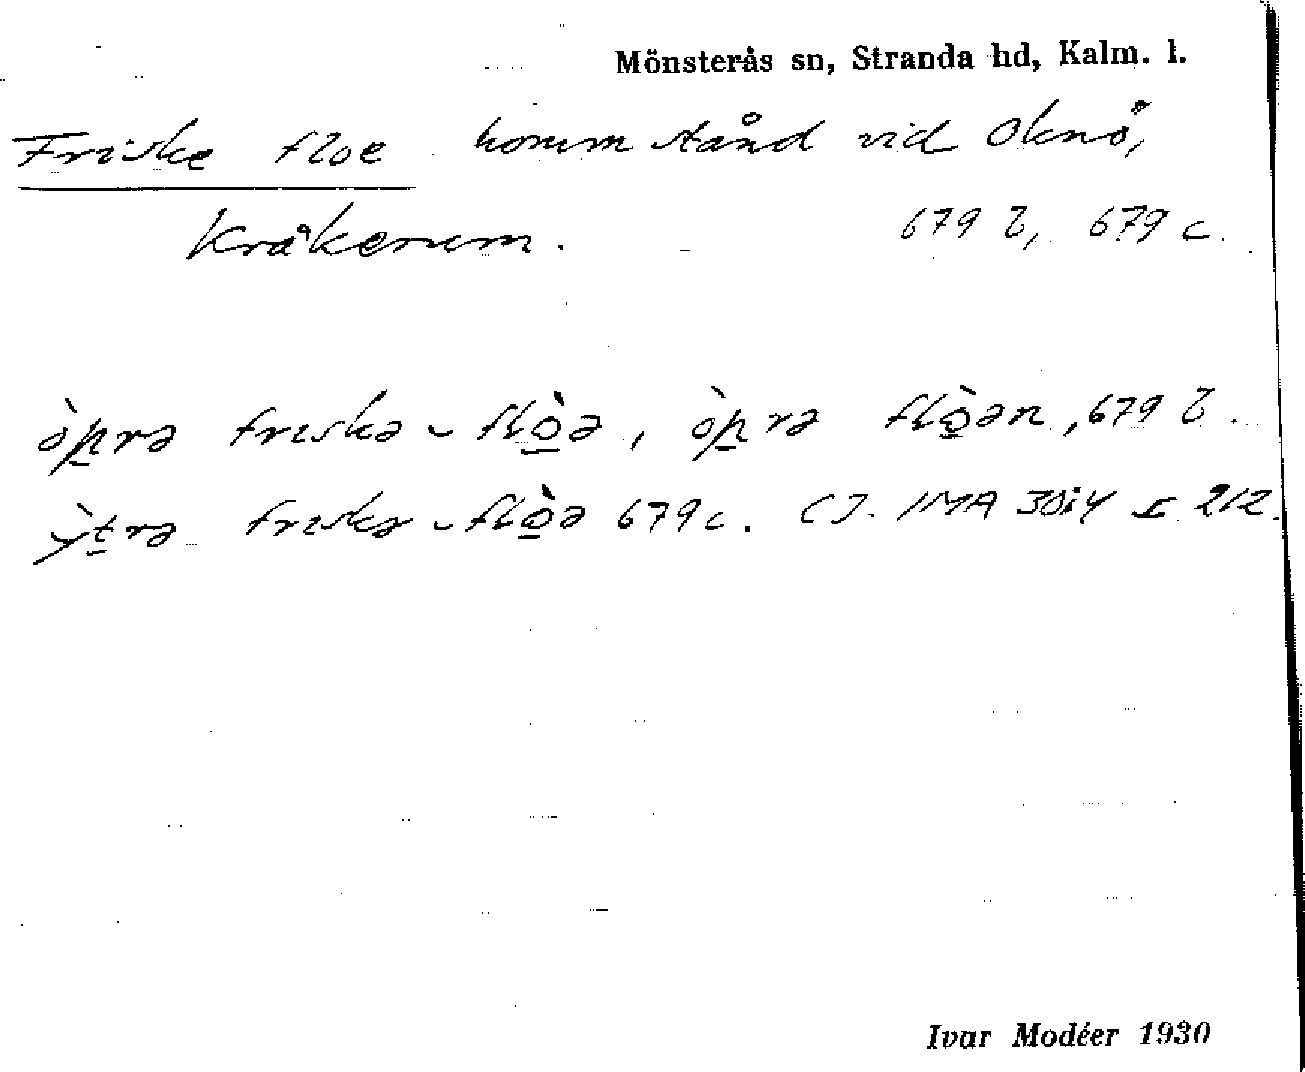 Mönsterås sn, Stranda hd, Kalm. l.
Friske floe homm stånd vid Oknö,
Kråkerum. 679 b, 679 c.
òp̲rə frɪskə ⌣ flò̲ə, òp̲rə flò̲ən, 679 b.
ỳt̲rə frɪskə ⌣ flò̲ə 679 c. CJ. IMA 30:4 s 212.
Ivar Modéer 1930